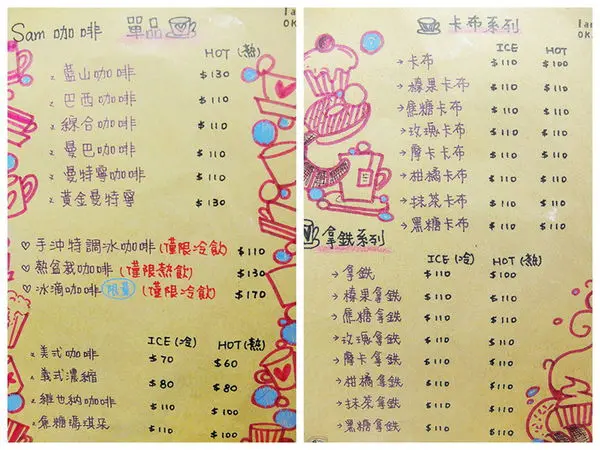 Sam 咖啡 單品
HOT (熱)
藍山咖啡 $130
巴西咖啡 $110
綜合咖啡 $110
曼巴咖啡 $110
曼特寧咖啡 $110
黃金曼特寧 $130
♡ 手沖特調冰咖啡(僅限冷飲) $110
♡ 熱盆栽咖啡(僅限熱飲) $130
♡ 冰滴咖啡 限量 (僅限冷飲) $170
ICE(冷) HOT(熱)
美式咖啡 $70 $60
義式濃縮 $80 $80
維也納咖啡 $110 $100
焦糖瑪琪朵 $110 $100
卡布系列
ICE HOT
→卡布 $110 $100
→榛果卡布 $110 $110
→焦糖卡布 $110 $110
→玫瑰卡布 $110 $110
→摩卡卡布 $110 $110
→柑橘卡布 $110 $110
→抹茶卡布 $110 $110
→黑糖卡布 $110 $110
拿鐵系列
ICE(冷) HOT(熱)
→拿鐵 $110 $100
→榛果拿鐵 $110 $110
→焦糖拿鐵 $110 $110
→玫瑰拿鐵 $110 $110
→摩卡拿鐵 $110 $110
→柑橘拿鐵 $110 $110
→抹茶拿鐵 $110 $110
→黑糖拿鐵 $110 $110